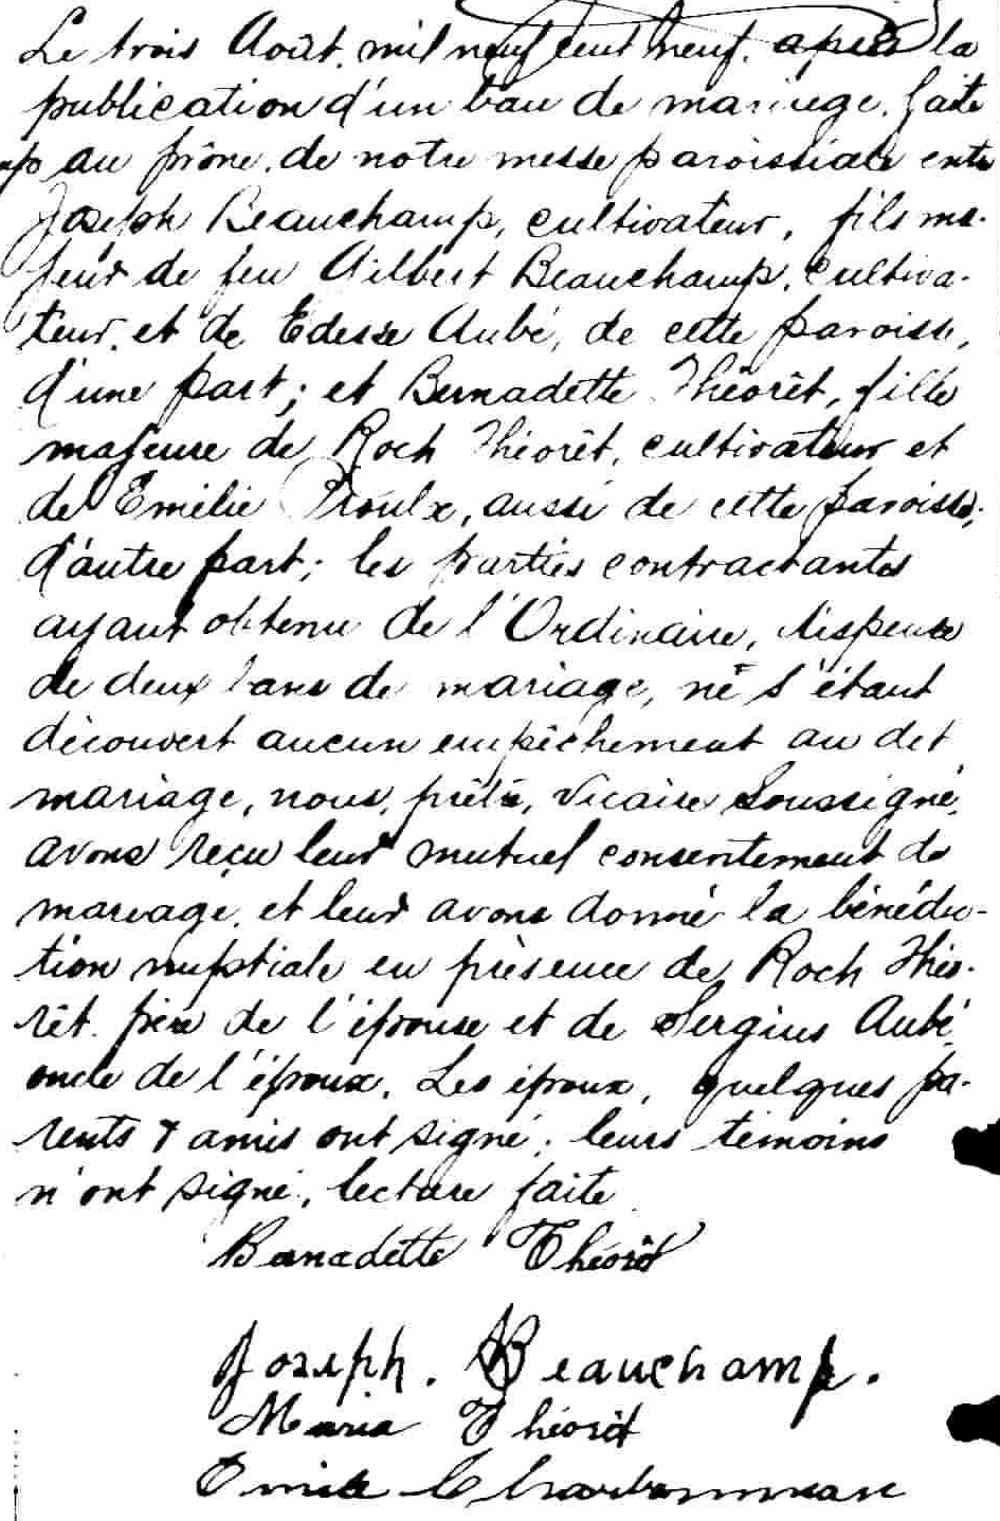 Le trois Août, mil neuf cent neuf, après la
publication d'un ban de mariage, faite
au prône de notre messe paroissiale entre
Joseph Beauchamp, cultivateur, fils ma-
jeur de feu Gilbert Beauchamp, cultiva-
teur, et de Edesse Aubé, de cette paroisse,
d'une part; et Bernadette Théorêt, fille
majeure de Roch Théorêt, cultivateur et
de Emélie Proulx, aussi de cette paroisse,
d'autre part; les parties contractantes
ayant obtenu de l'Ordinaire, dispense
de deux bans de mariage, ne s'étant
découvert aucun empêchement au dit
mariage, nous, prêtre, vicaire soussigné,
avons reçu leur mutuel consentement de
mariage, et leur avons donné la bénédic-
tion nuptiale en présence de Roch Théo-
rêt père de l'épouse et de Sergius Aubé,
oncle de l'époux. Les époux, quelques pa-
rents & amis ont signé; leurs témoins
n'ont signé, lecture faite
Bernadette Théorêt
Joseph. Beauchamp.
Maria Théorêt
Emile Charbonneau